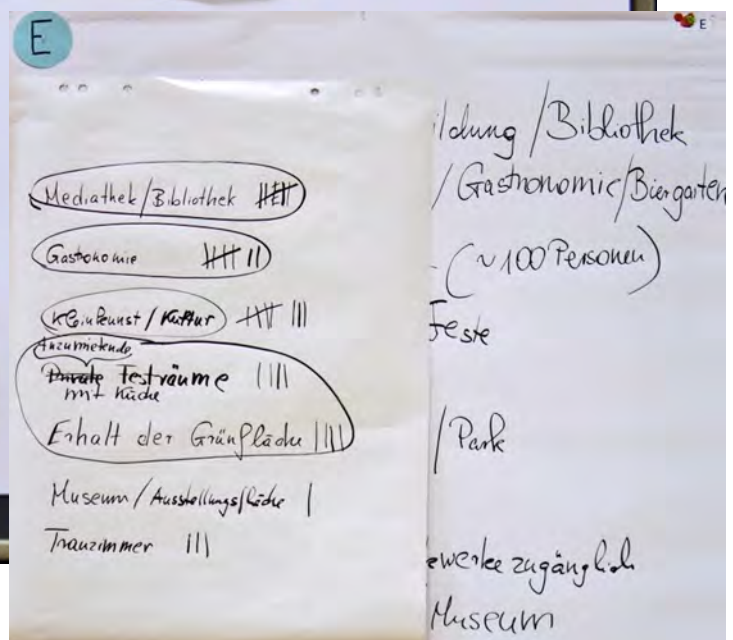 E
E
Mediathek/Bibliothek
Gastronomie
Kleinkunst/Kultur
Anzumietende
Private Festräume
mit Küche
Erhalt der Grünfläche
Museum/Ausstellungsfläche
Trauzimmer
ildung/Bibliothek
/Gastronomie/Biergarten
(~100 Personen)
Feste
/Park
ewerke zugänglich
Museum